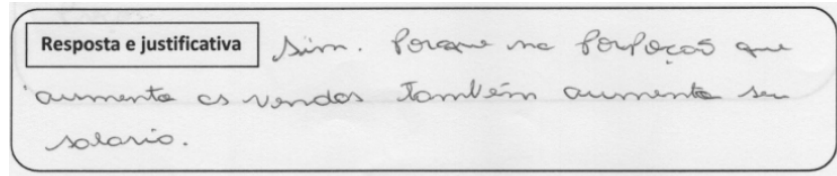 Resposta e justificativa Sim. Porque na porpoças que
aumenta as vendas também aumenta seu
salario.